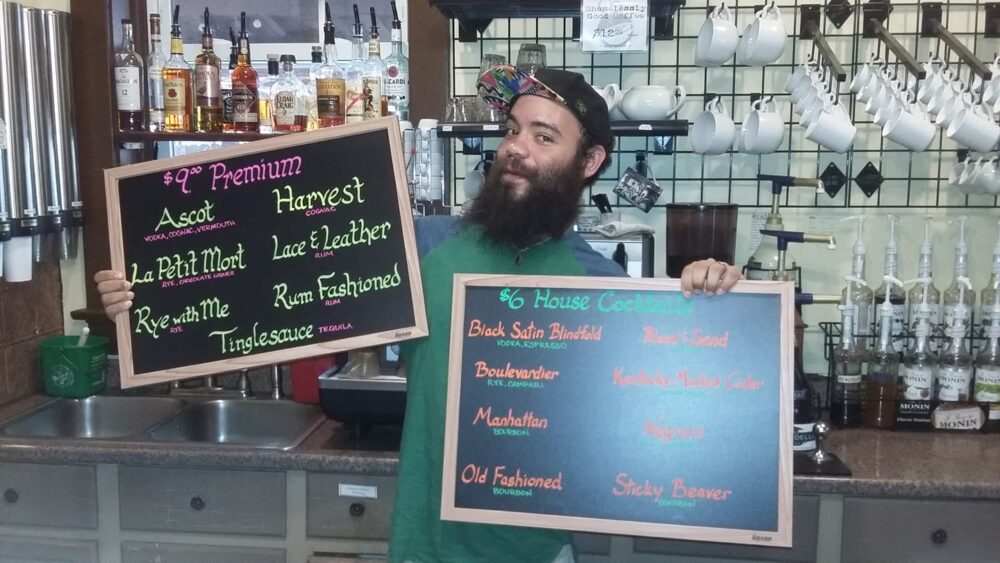 Shamelessly
Good Coffee
$12.00
BACARDI
ELIJAH
CRAIG
$9.00 Premium
Ascot
VODKA, COGNAC, VERMOUTH
Harvest
COGNAC
La Petit Mort
RYE, CHOCOLATE LIQUEUR
Lace & Leather
RUM
Rye with Me
RYE
Rum Fashioned
RUM
Tinglesauce TEQUILA
$6 House Cocktails
Black Satin Blindfold
VODKA, ESPRESSO
Blood & Sand
Boulevardier
RYE, CAMPARI
Kentucky Mulled Cider
Manhattan
BOURBON
Negroni
Old Fashioned
BOURBON
Sticky Beaver
BOURBON
MONIN
MONIN
MONIN